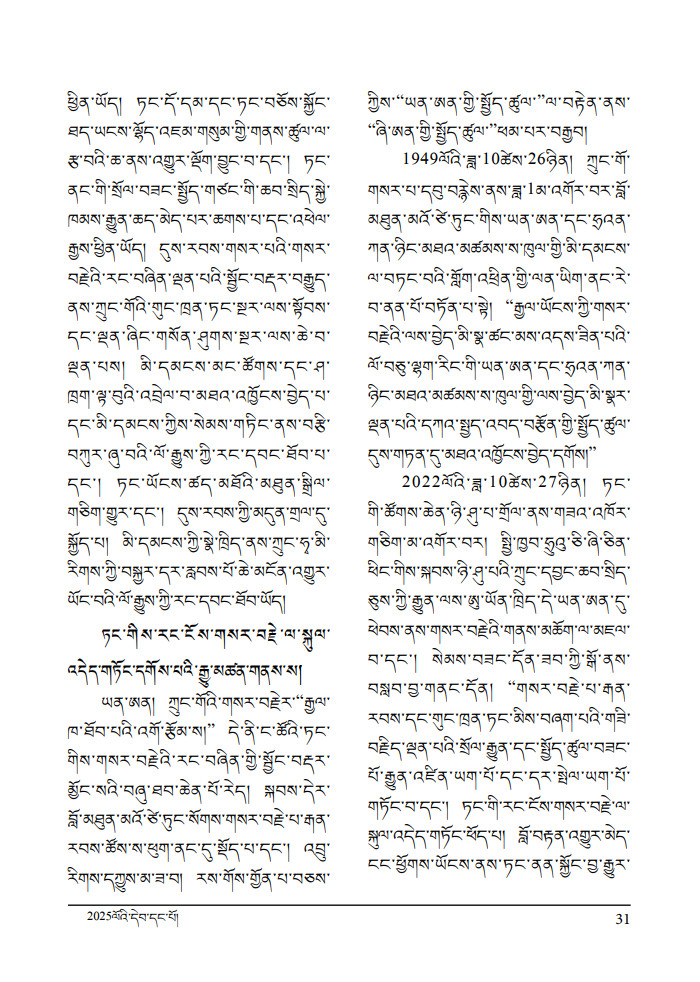 ཕྱིན་ཡོད། ཏང་དོ་དམ་དང་ཏང་བཅོས་སྐྱོང་
ཐད་ཡངས་ལྷོད་འཇམ་གསུམ་གྱི་གནས་ཚུལ་ལ་
རྩ་བའི་ཆ་ནས་འགྱུར་ལྡོག་བྱུང་བ་དང་། ཏང་
ནང་གི་སྲོལ་བཟང་སྤྱོད་གཙང་གི་ཆབ་སྲིད་སྐྱེ་
ཁམས་རྒྱུན་ཆད་མེད་པར་ཆགས་པ་དང་འཕེལ་
རྒྱས་ཕྱིན་ཡོད། དུས་རབས་གསར་པའི་གསར་
བརྗེའི་རང་བཞིན་ལྡན་པའི་སྦྱོང་བརྡར་བརྒྱུད་
ནས་ཀྲུང་གོའི་གུང་ཁྲན་ཏང་སྔར་ལས་སྟོབས་
དང་ལྡན་ཞིང་གསོན་ཤུགས་སྔར་ལས་ཆེ་བ་
ལྡན་པས། མི་དམངས་མང་ཚོགས་དང་ཤ་
ཁྲག་ལྟ་བུའི་འབྲེལ་བ་མཐའ་འཁྱོངས་བྱེད་པ་
དང་མི་དམངས་ཀྱིས་སེམས་གཏིང་ནས་བརྩི་
བཀུར་ཞུ་བའི་ལོ་རྒྱུས་ཀྱི་རང་དབང་ཐོབ་པ་
དང་། ཏང་ཡོངས་ཚད་མཐོའི་མཐུན་སྒྲིལ་
གཅིག་གྱུར་དང་། དུས་རབས་ཀྱི་མདུན་གྲལ་དུ་
སྐྱོད་པ། མི་དམངས་ཀྱི་སྣེ་ཁྲིད་ནས་ཀྲུང་ཧྭ་མི་
རིགས་ཀྱི་བསྐྱར་དར་རླབས་པོ་ཆེ་མངོན་འགྱུར་
ཡོང་བའི་ལོ་རྒྱུས་ཀྱི་རང་དབང་ཐོབ་ཡོད།
ཏང་གིས་རང་ངོས་གསར་བརྗེ་ལ་སྐུལ་
འདེད་གཏོང་དགོས་པའི་རྒྱུ་མཚན་གནས་ས།
ཡན་ཨན། ཀྲུང་གོའི་གསར་བརྗེར་“རྒྱལ་
ཁ་ཐོབ་པའི་འགོ་རྩོམ་ས།” དེ་ནི་ང་ཚོའི་ཏང་
གིས་གསར་བརྗེའི་རང་བཞིན་གྱི་སྦྱོང་བརྡར་
མྱོང་སའི་བཞུ་ཐབ་ཆེན་པོ་རེད། སྐབས་དེར་
བློ་མཐུན་མའོ་ཙེ་ཏུང་སོགས་གསར་བརྗེ་པ་རྒན་
རབས་ཚོས་ས་ཕུག་ནང་དུ་སྡོད་པ་དང་། འབྲུ་
རིགས་དཀྱུས་མ་ཟ་བ། རས་གོས་གྱོན་པ་བཅས་
ཀྱིས་“ཡན་ཨན་གྱི་སྤྱོད་ཚུལ་”ལ་བརྟེན་ནས་
“ཞི་ཨན་གྱི་སྤྱོད་ཚུལ་”ཕམ་པར་བརྒྱབ།
1949ལོའི་ཟླ་10ཚེས་26ཉིན། ཀྲུང་གོ་
གསར་པ་དབུ་བརྙེས་ནས་ཟླ་1མ་འགོར་བར་བློ་
མཐུན་མའོ་ཙེ་ཏུང་གིས་ཡན་ཨན་དང་ཧྲའན་
ཀན་ཉིང་མཐའ་མཚམས་ས་ཁུལ་གྱི་མི་དམངས་
ལ་བཏང་བའི་གློག་འཕྲིན་གྱི་ལན་ཡིག་ནང་རེ་
བ་ནན་པོ་བཏོན་པ་སྟེ། “རྒྱལ་ཡོངས་ཀྱི་གསར་
བརྗེའི་ལས་བྱེད་མི་སྣ་ཚང་མས་འདས་ཟིན་པའི་
ལོ་བཅུ་ལྷག་རིང་གི་ཡན་ཨན་དང་ཧྲའན་ཀན་
ཉིང་མཐའ་མཚམས་ས་ཁུལ་གྱི་ལས་བྱེད་མི་སྣར་
ལྡན་པའི་དཀའ་སྤྱད་འབད་བརྩོན་གྱི་སྤྱོད་ཚུལ་
དུས་གཏན་དུ་མཐའ་འཁྱོངས་བྱེད་དགོས།”
2022ལོའི་ཟླ་10ཚེས་27ཉིན། ཏང་
གི་ཚོགས་ཆེན་ཉི་ཤུ་པ་གྲོལ་ནས་གཟའ་འཁོར་
གཅིག་མ་འགོར་བར། སྤྱི་ཁྱབ་ཧྲུའུ་ཅི་ཞི་ཅིན་
ཕིང་གིས་སྐབས་ཉི་ཤུ་པའི་ཀྲུང་དབྱང་ཆབ་སྲིད་
ཅུས་ཀྱི་རྒྱུན་ལས་ཨུ་ཡོན་ཁྲིད་དེ་ཡན་ཨན་དུ་
ཕེབས་ནས་གསར་བརྗེའི་གནས་མཆོག་ལ་མཇལ་
བ་དང་། སེམས་བཟང་དོན་ཟབ་ཀྱི་སྒོ་ནས་
བསླབ་བྱ་གནང་དོན། “གསར་བརྗེ་པ་རྒན་
རབས་དང་གུང་ཁྲན་ཏང་མིས་བཞག་པའི་གཟི་
བརྗིད་ལྡན་པའི་སྲོལ་རྒྱུན་དང་སྤྱོད་ཚུལ་བཟང་
པོ་རྒྱུན་འཛིན་ཡག་པོ་དང་དར་སྤེལ་ཡག་པོ་
གཏོང་བ་དང་། ཏང་གི་རང་ངོས་གསར་བརྗེ་ལ་
སྐུལ་འདེད་གཏོང་ཕོད་པ། བློ་བརྟན་འགྱུར་མེད་
ངང་ཕྱོགས་ཡོངས་ནས་ཏང་ནན་སྐྱོང་བྱ་རྒྱུར་
2025ལོའི་དེབ་དང་པོ།
31